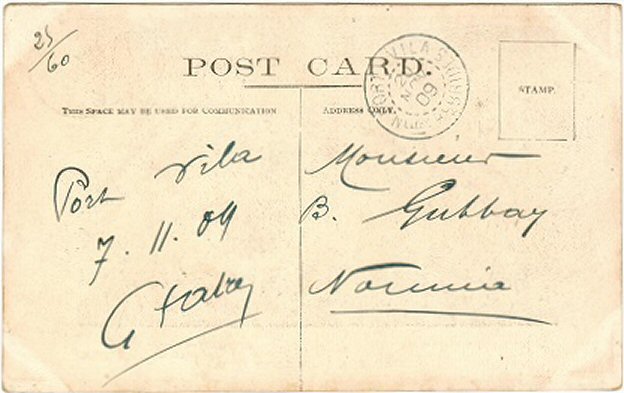 25/60
POST CARD.
THIS SPACE MAY BE USED FOR COMMUNICATION
ADDRESS ONLY.
STAMP.
PORT VILA
NOV 09
Port Vila
7.11.09
Monsieur
B. Gubbay
Noumea